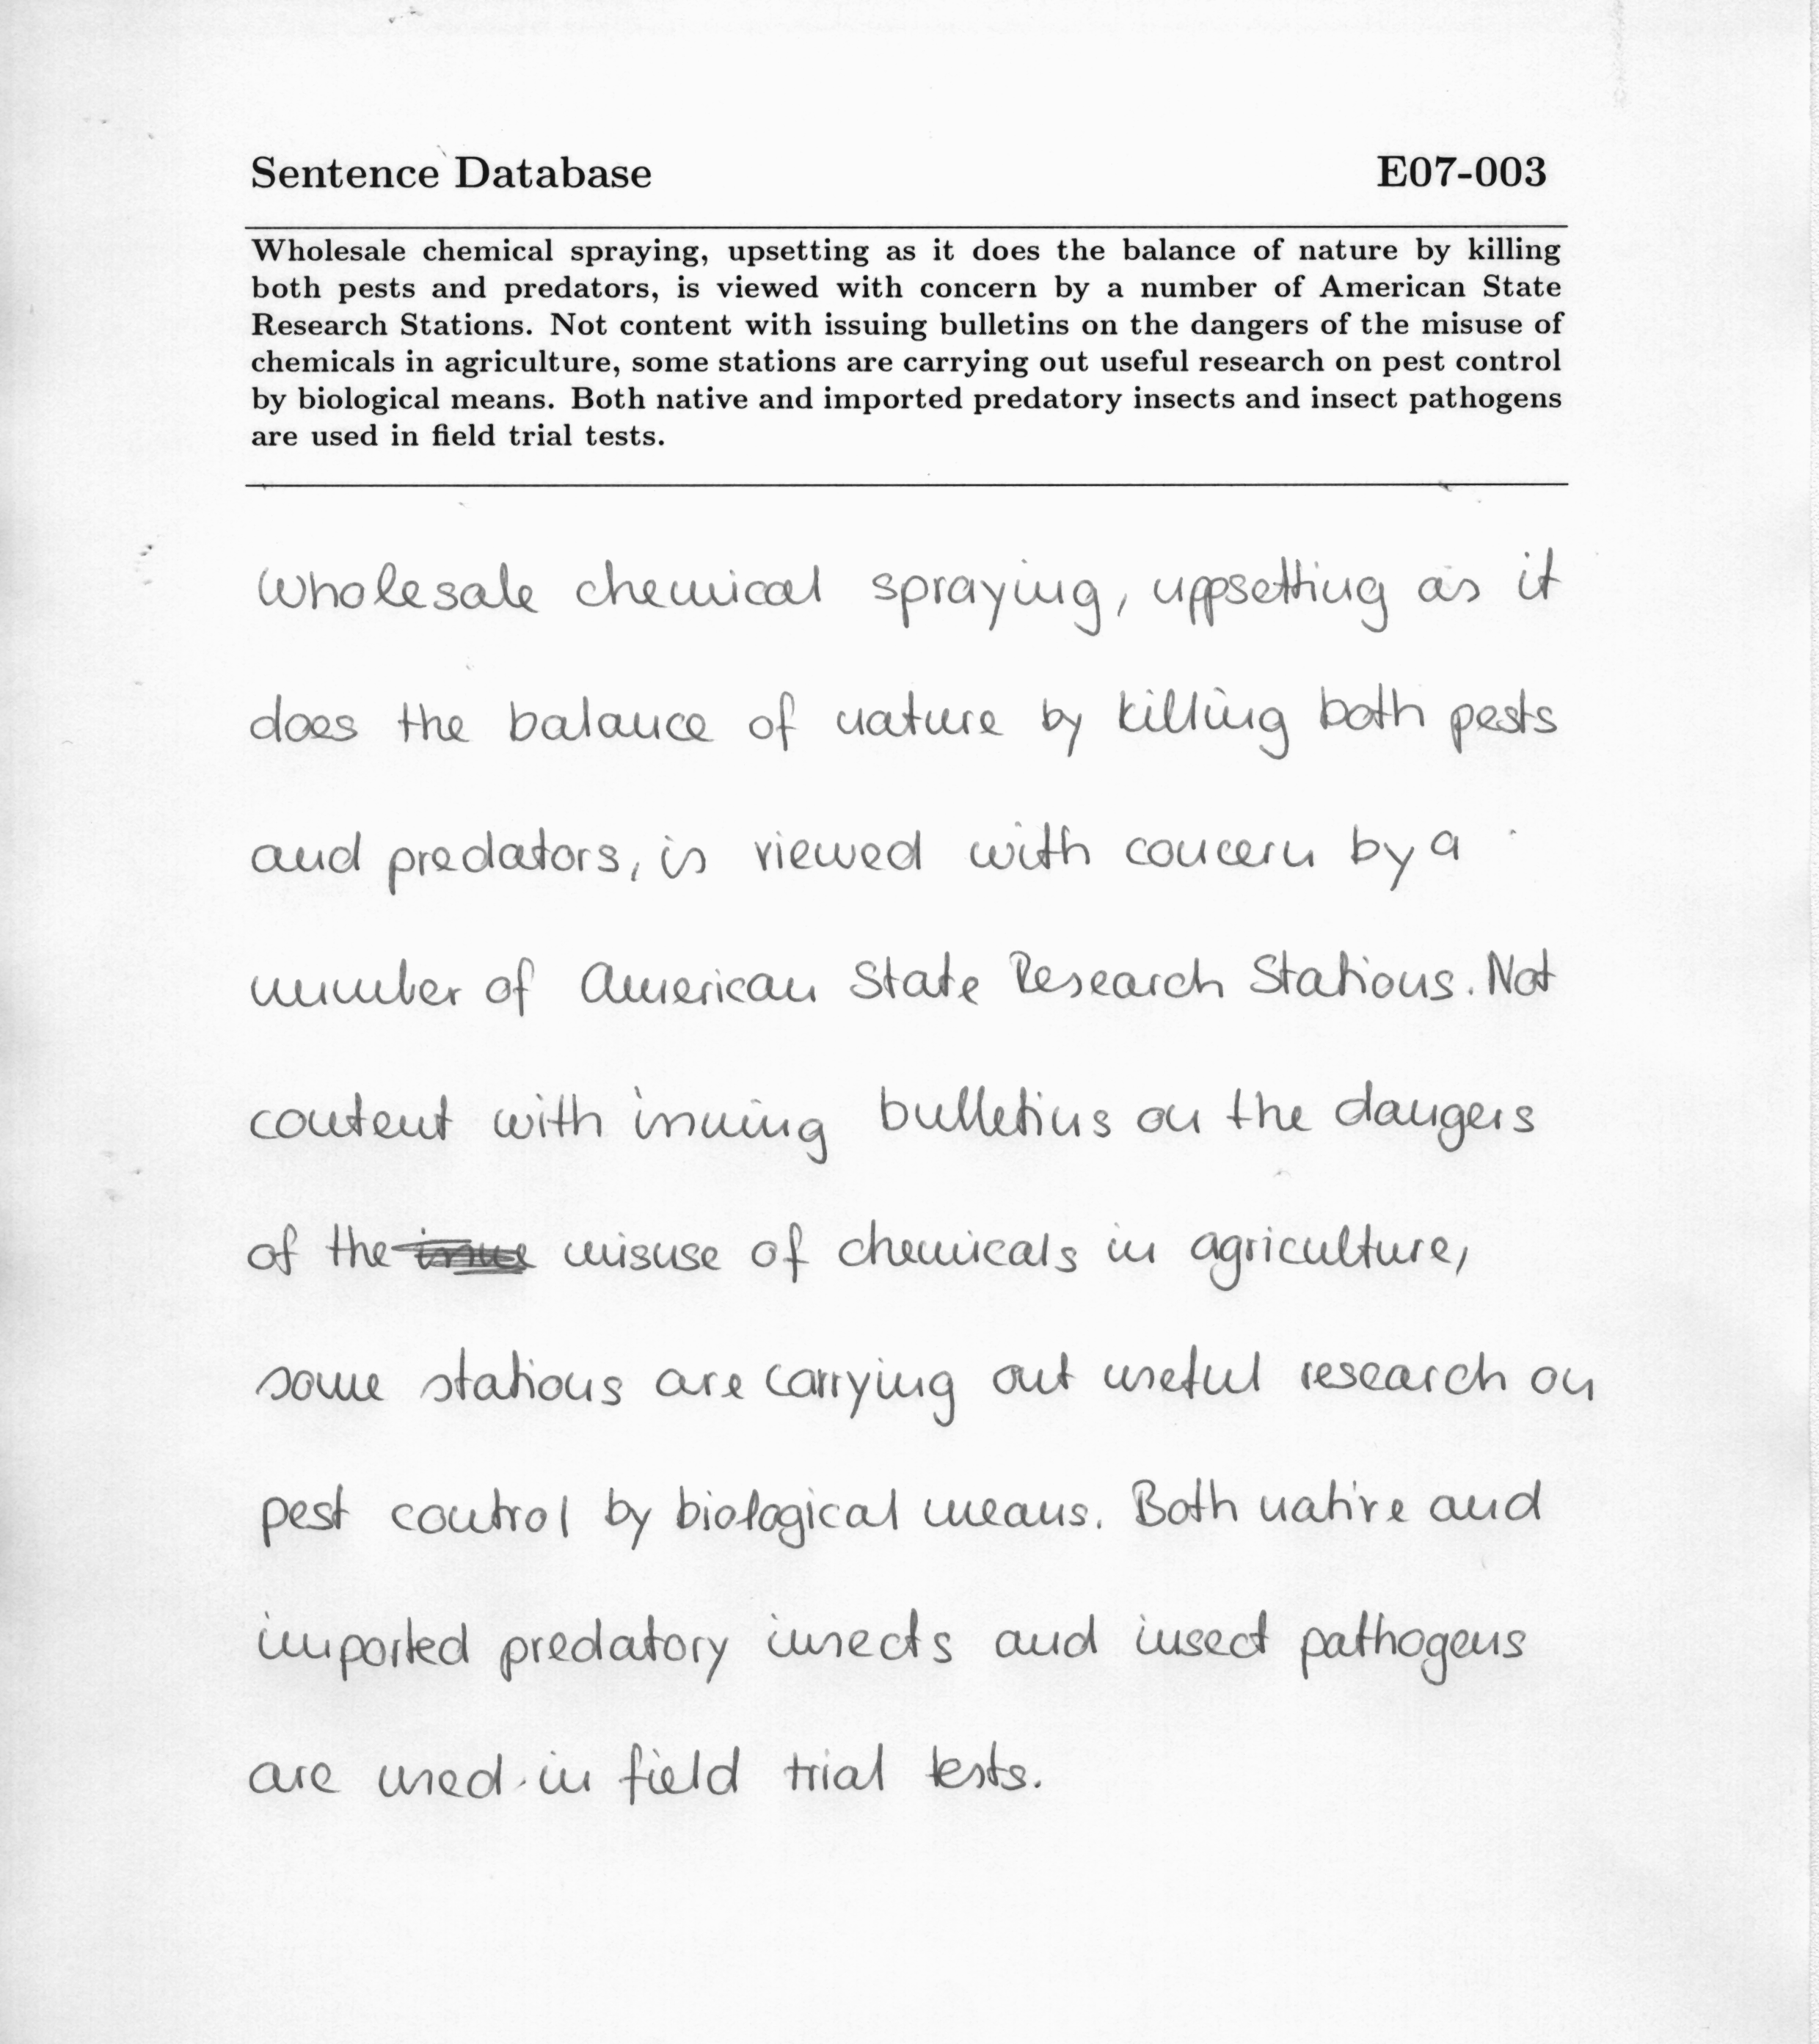 Sentence Database E07-003
Wholesale chemical spraying, upsetting as it does the balance of nature by killing
both pests and predators, is viewed with concern by a number of American State
Research Stations. Not content with issuing bulletins on the dangers of the misuse of
chemicals in agriculture, some stations are carrying out useful research on pest control
by biological means. Both native and imported predatory insects and insect pathogens
are used in field trial tests.
Wholesale chemical spraying, uppsetting as it
does the balance of nature by killing both pests
and predators, is viewed with concern by a
number of American State Research Stations. Not
content with issuing bulletins on the dangers
of the misuse of chemicals in agriculture,
some stations are carrying out useful research on
pest control by biological means. Both native and
imported predatory insects and insect pathogens
are used in field trial tests.